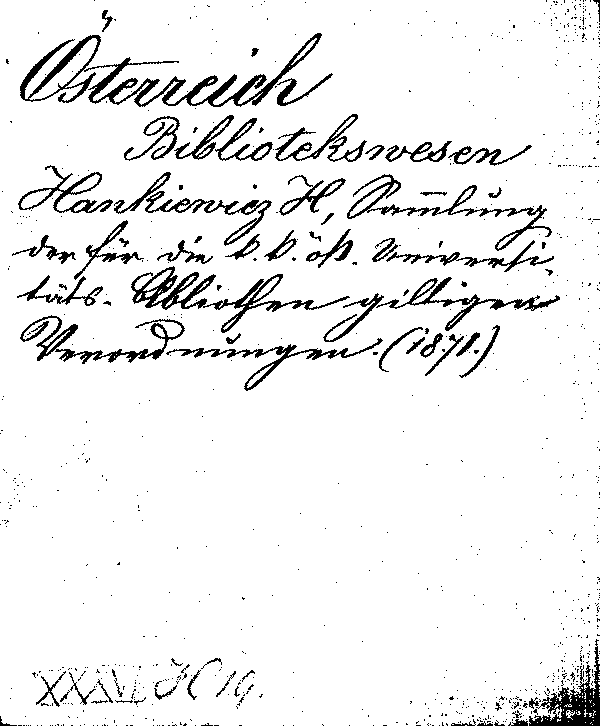 Österreich
Bibliotekswesen
Hankiewicz H, Sammlung
der für die k. k. öst. Universi-
täts- Bibliothen giltigen
Verordnungen. (1871.)
XXXVI H 19.